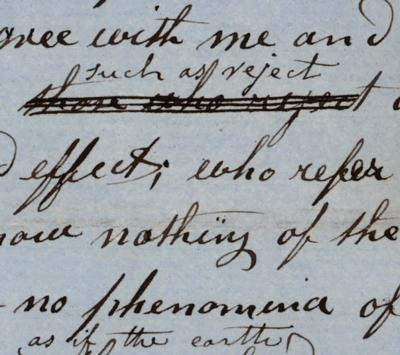 agree with me and
such as reject
those who reject
effect; who refer
know nothing of the
no phenomena of
as if the earth